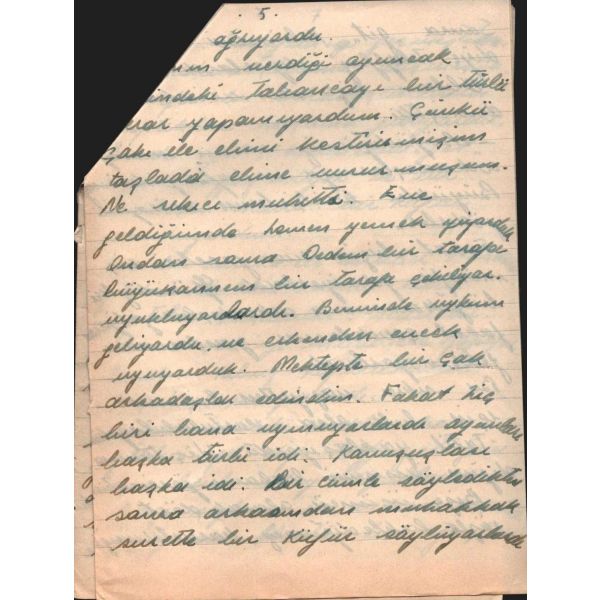 . 5.
ağrıyordu.
verdiği oyuncak
tabancayı bir türlü
yapamıyordum. Çünkü
çakı ile elimi kestirirmişim
taşlada elime vururmuşum.
Ne muhitti. Eve
geldiğimde hemen yemek yiyordum
Ondan sonra Dedem bir tarafa
büyükannem bir tarafa çekiliyor.
uyukluyorlardı. Benimde uykum
geliyordu. ve erkenden
uyuyorduk. Mektepte bir çok
arkadaşlar edindim. Fakat hiç
biri bana uymuyorlardı oyunları
başka türlü idi. Konuşuşları
başka idi. Bir cümle söyledikten
sonra arkasından muhakkak
surette bir küfür söylüyorlardı